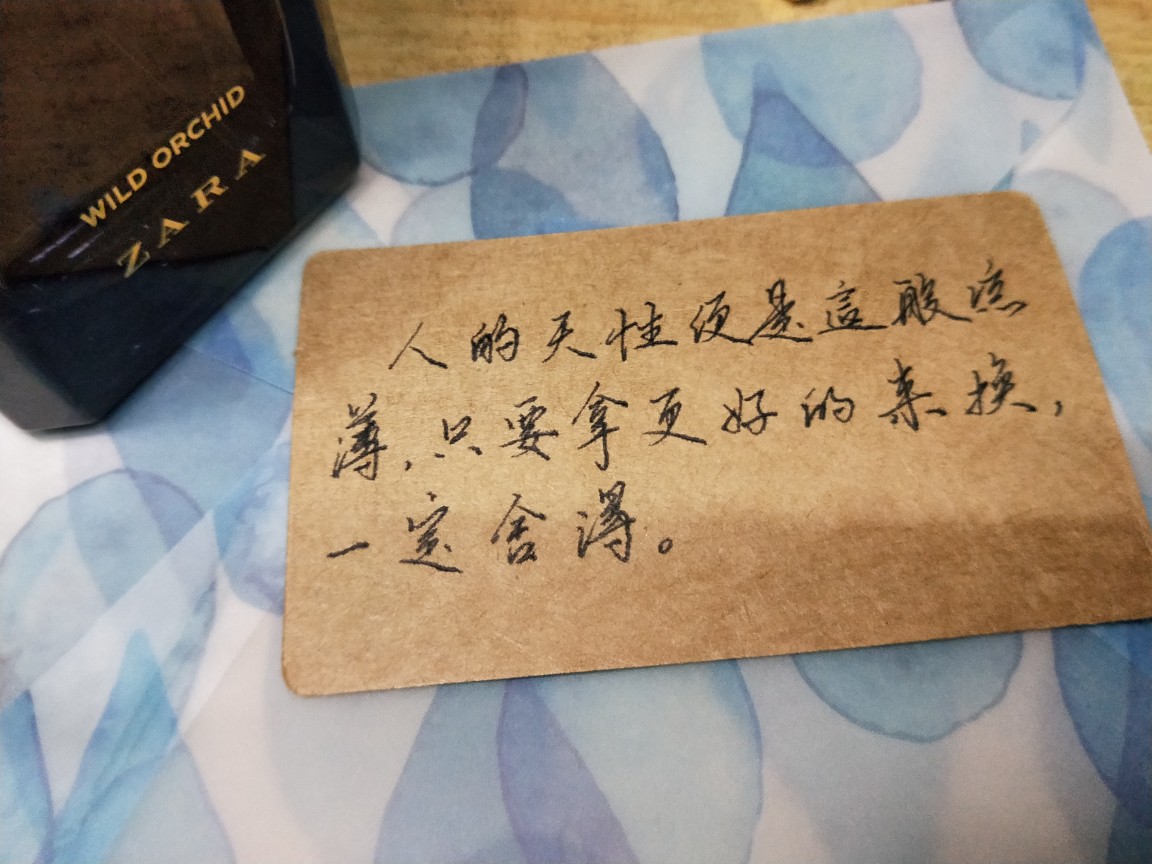 WILD ORCHID
ZARA
人的天性便是這般涼
薄,只要拿更好的来换,
一定舍得。